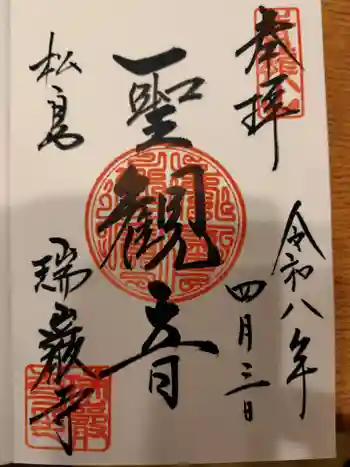 奉拝
令和八年
四月三日
聖観音
松島
瑞巌寺